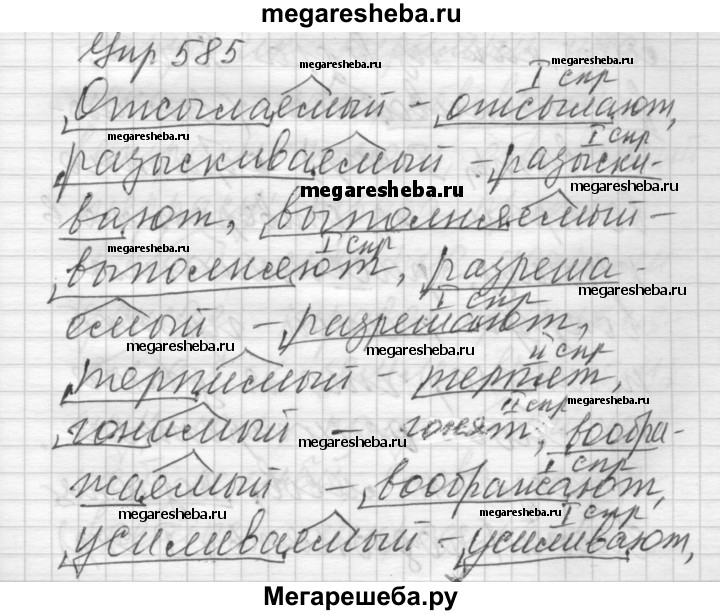 megaresheba.ru
Упр 585
megaresheba.ru
megaresheba.ru
I спр
Отсылаемый - отсылают,
megaresheba.ru
I спр
разыскиваемый - разыски-
megaresheba.ru
megaresheba.ru
вают, выполняемый -
megaresheba.ru
I спр
выполняют, разреша-
I спр
емый - разрешают,
megaresheba.ru
megaresheba.ru
II спр
терпимый - терпят,
II спр
megaresheba.ru
гонимый - гонят, вообра-
megaresheba.ru
I спр
жаемый - воображают,
megaresheba.ru
megaresheba.ru
I спр
усиливаемый - усиливают,
Мегарешеба.ру